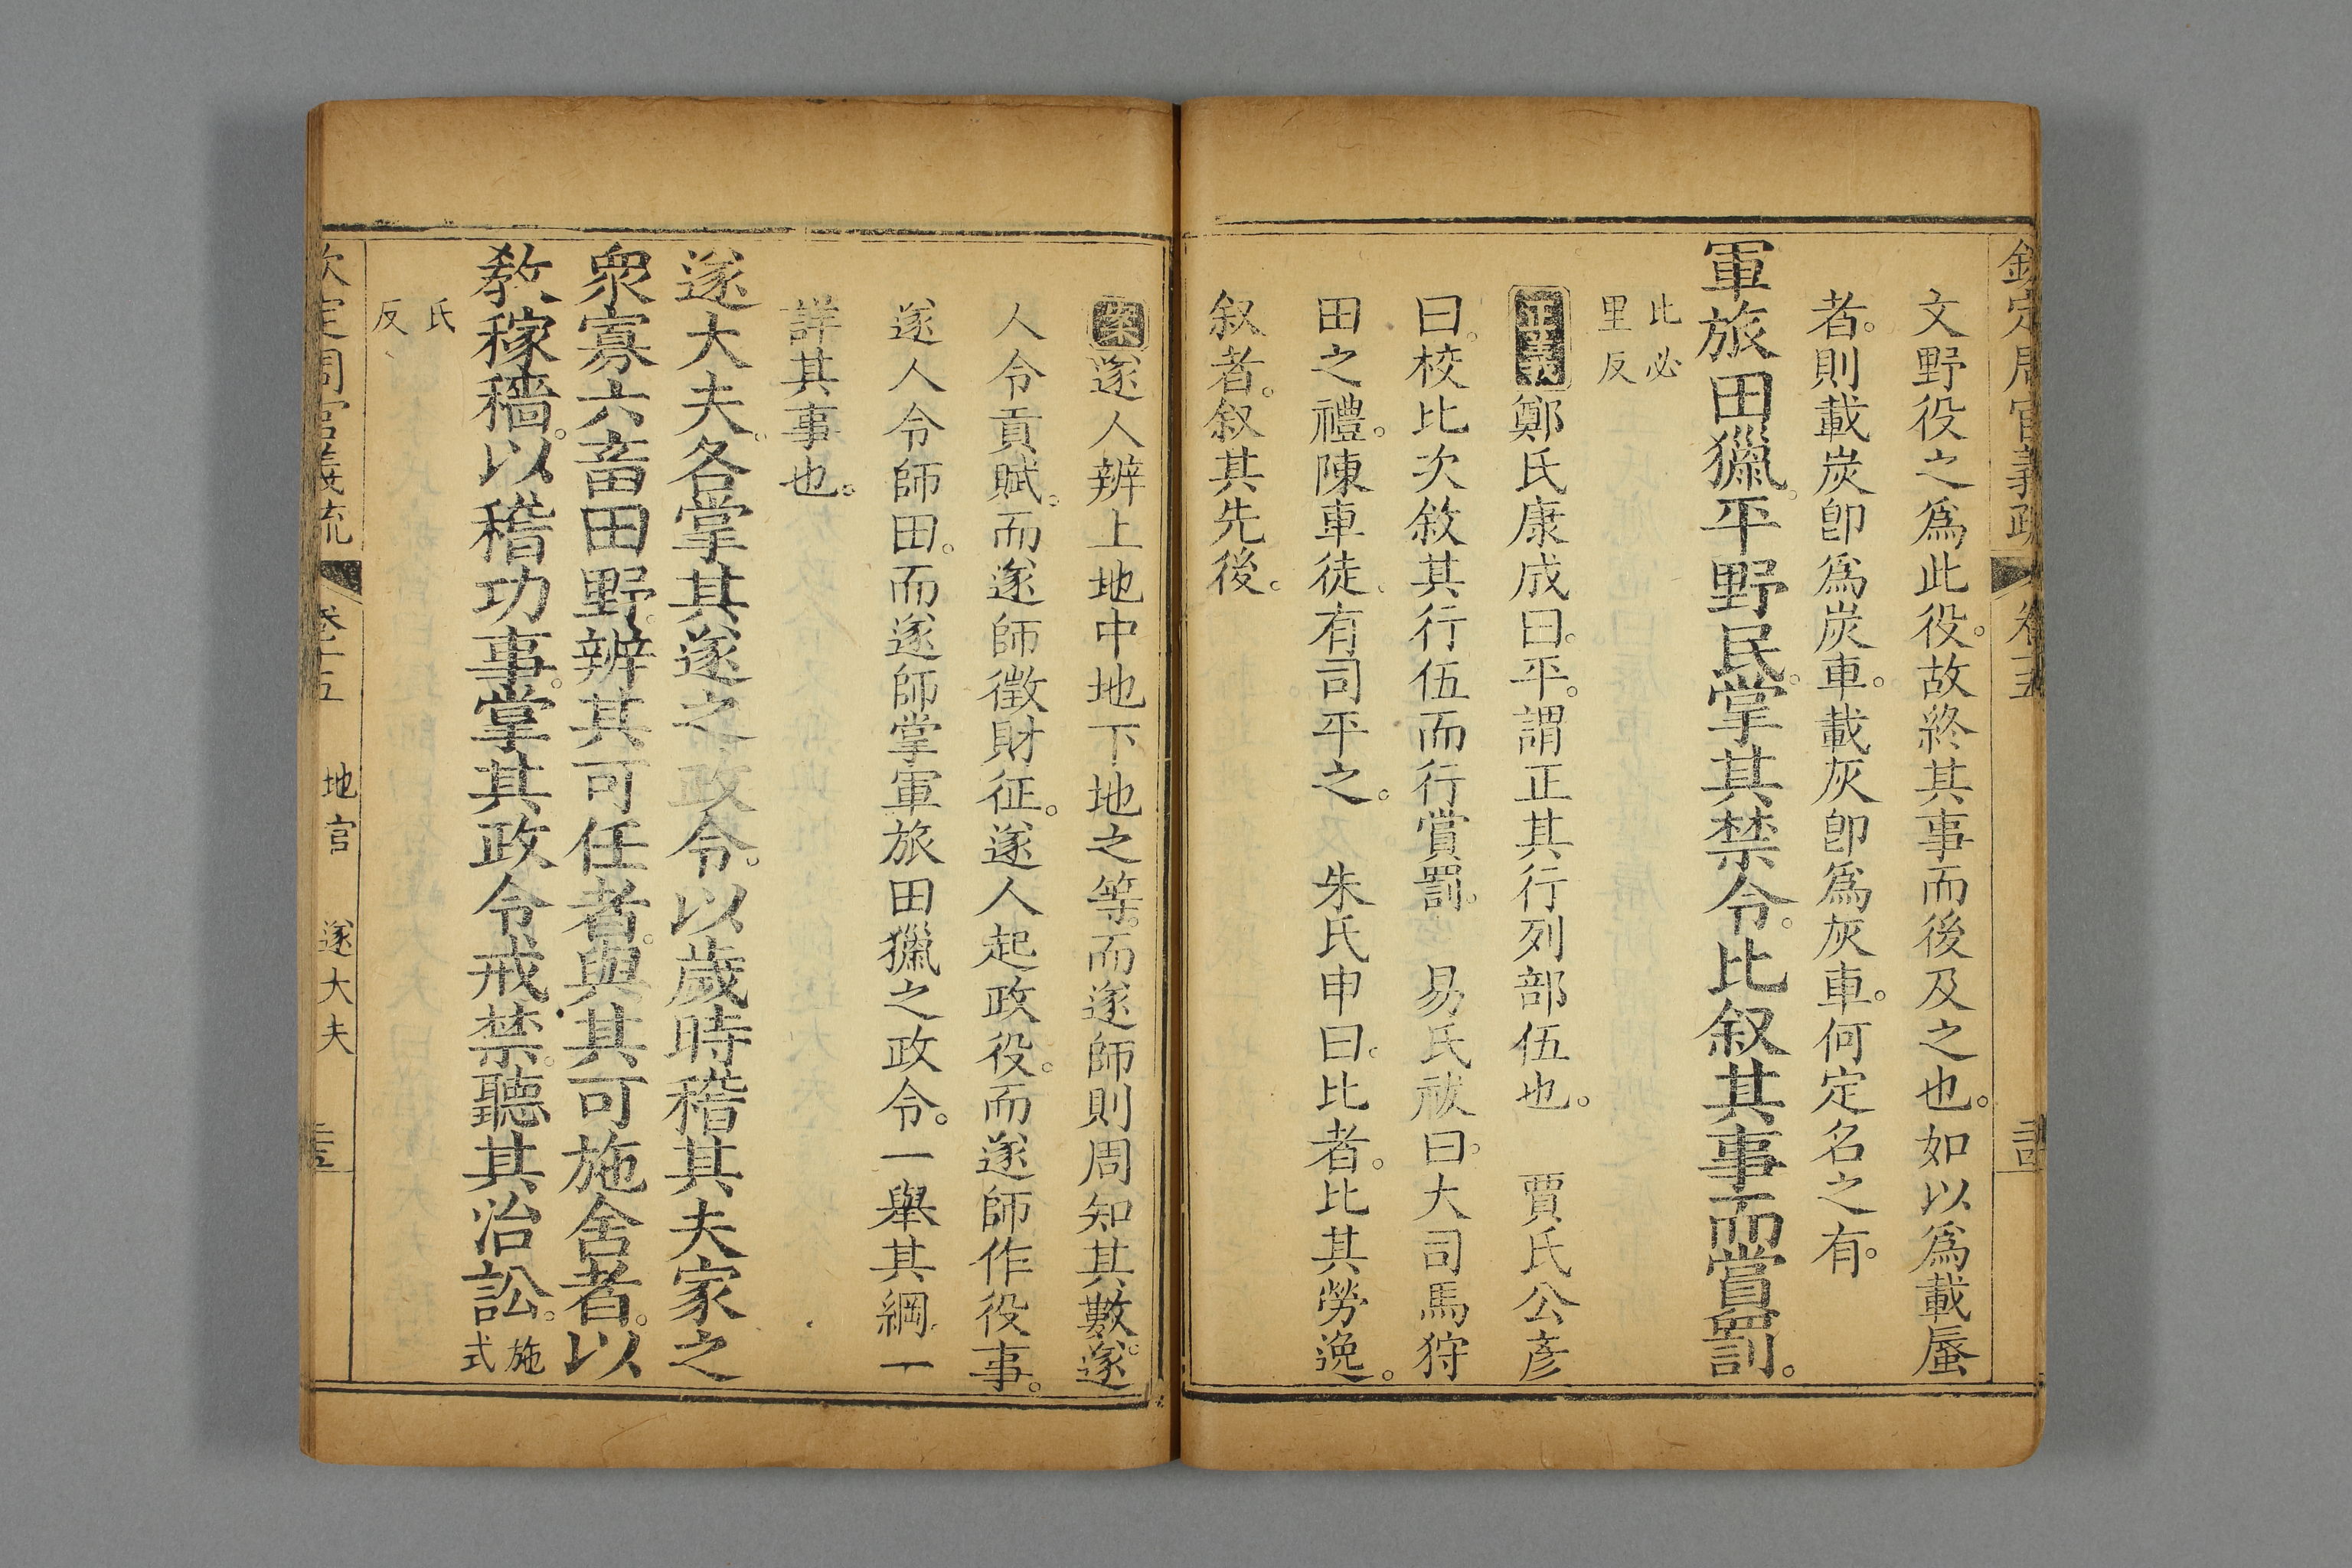 欽定周官義疏 卷十五
文野役之爲此役。故終其事而後及之也。如以爲載蜃
者。則載炭卽爲炭車。載灰卽爲灰車。何定名之有。
軍旅田獵。平野民。掌其禁令。比叙其事而賞罰。
比必
里反
正義鄭氏康成曰。平。謂正其行列部伍也。 賈氏公彦
曰。校比次敘其行伍而行賞罰。 易氏祓曰。大司馬狩
田之禮。陳車徒。有司平之。 朱氏申曰。比者。比其勞逸。
叙者。叙其先後。
案遂人辨上地中地下地之等。而遂師則周知其數。遂
人令貢賦。而遂師徵財征。遂人起政役。而遂師作役事。
遂人令師田。而遂師掌軍旅田獵之政令。一舉其綱。一
詳其事也。
遂大夫。各掌其遂之政令。以歲時稽其夫家之
衆寡六畜田野。辨其可任者。與其可施舍者。以
敎稼穡。以稽功事。掌其政令戒禁。聽其治訟。施
式
氏
反
欽定周官義疏 卷十五 地官 遂大夫